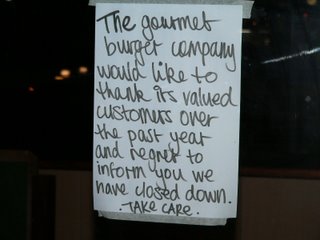 The gourmet
burger company
would like to
thank its valued
customers over
the past year
and regret to
inform you we
have closed down.
. TAKE CARE .